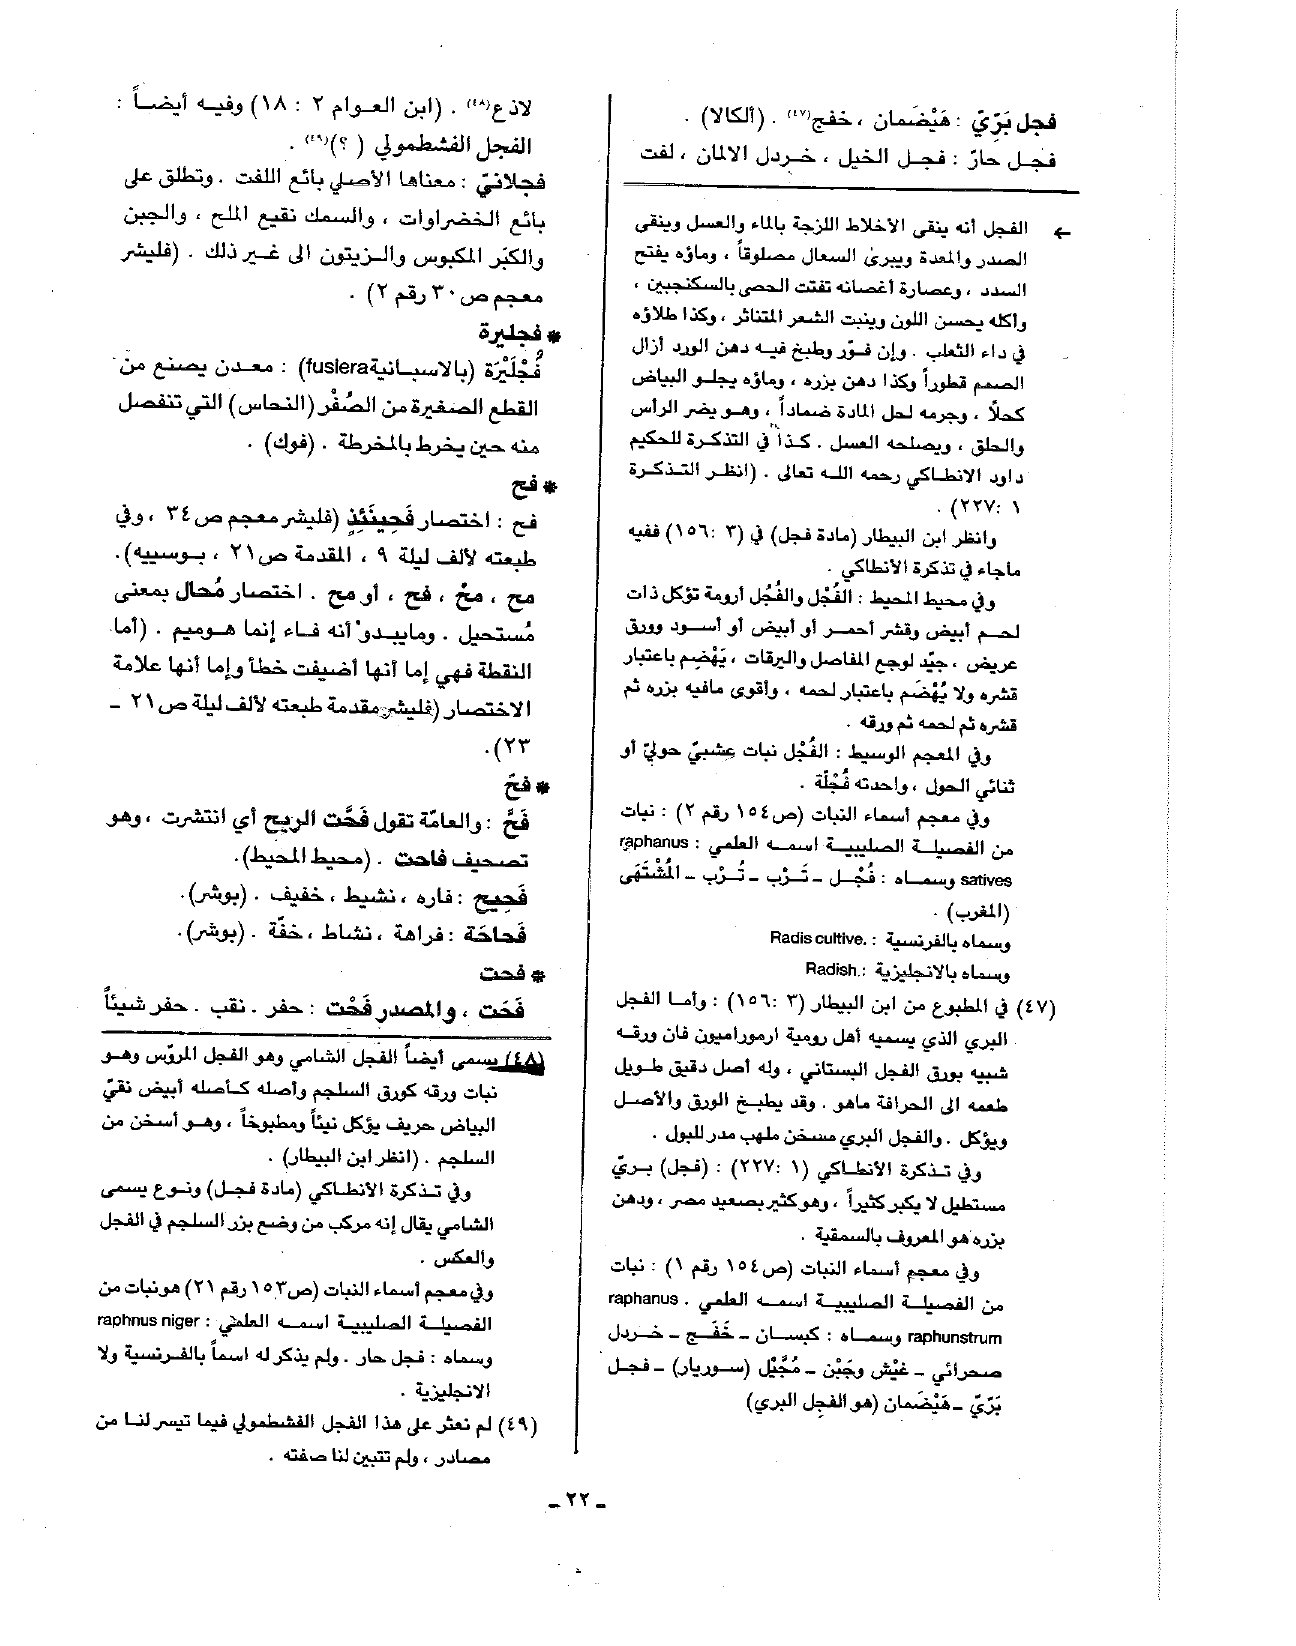 فجل بَرّيّ : هَيْضَمان ، خفج(٤٧) . (ألكالا) .
فجل حارّ : فجل الخيل ، خردل الالمان ، لفت
لاذع(٤٨) . (ابن العوام ٢ : ١٨) وفيه أيضاً :
الفجل الفشطمولي ( ؟)(٤٩) .
فجلانيّ : معناها الأصلي بائع اللفت . وتطلق على
بائع الخضراوات ، والسمك نقيع الملح ، والجبن
والكبّر المكبوس والزيتون الى غير ذلك . (فليشر
معجم ص٣٠ رقم ٢) .
* فجليرة
فُجُلَيْرَة (بالاسبانية fuslera) : معدن يصنع من
القطع الصغيرة من الصُفْر (النحاس) التي تنفصل
منه حين يخرط بالمخرطة . (فوك) .
* فح
فح : اختصار فَحِينَئِذٍ (فليشر معجم ص٣٤ ، وفي
طبعته لألف ليلة ٩ ، المقدمة ص٢١ ، بوسييه).
مح ، مخ ، فح ، أو مح . اختصار مُحال بمعنى
مُستحيل . ومايبدو أنه فاء إنما هوميم . (أما
النقطة فهي إما أنها أضيفت خطأ وإما أنها علامة
الاختصار (فليشر مقدمة طبعته لألف ليلة ص٢١ -
٢٣).
* فحّ
فَحَّ : والعامّة تقول فَحَّت الريح أي انتشرت ، وهو
تصحيف فاحت . (محيط المحيط).
فَحِيح : فاره ، نشيط ، خفيف . (بوشر).
فَحاحَة : فراهة ، نشاط ، خفّة . (بوشر).
* فحت
فَحَت ، والمصدر فَحْت : حفر . نقب . حفر شيئاً
← الفجل أنه ينقى الأخلاط اللزجة بالماء والعسل وينقى
الصدر والمعدة ويبرئ السعال مصلوقاً ، وماؤه يفتح
السدد ، وعصارة أغصانه تفتت الحصى بالسكنجبين ،
وأكله يحسن اللون وينبت الشعر المتناثر ، وكذا طلاؤه
في داء الثعلب . وإن قوّر وطبخ فيه دهن الورد أزال
الصمم قطوراً وكذا دهن بزره ، وماؤه يجلو البياض
كحلاً ، وجرمه لحل المادة ضماداً ، وهو يضر الرأس
والحلق ، ويصلحه العسل . كذا في التذكرة للحكيم
داود الانطاكي رحمه الله تعالى . (انظر التذكرة
١ :٢٢٧) .
وانظر ابن البيطار (مادة فجل) في (٣ :١٥٦) ففيه
ماجاء في تذكرة الأنطاكي .
وفي محيط المحيط : الفُجْل والفُجُل أرومة تؤكل ذات
لحم أبيض وقشر أحمر أو أبيض أو أسود وورق
عريض ، جيّد لوجع المفاصل واليرقات ، يَهْضِم باعتبار
قشره ولا يُهْضَم باعتبار لحمه ، وأقوى مافيه بزره ثم
قشره ثم لحمه ثم ورقه .
وفي المعجم الوسيط : الفُجْل نبات عشبيّ حوليّ أو
ثنائي الحول ، واحدته فُجْلَة .
وفي معجم أسماء النبات (ص١٥٤ رقم ٢) : نبات
من الفصيلة الصليبية اسمه العلمي : raphanus
satives وسماه : فُجْل - تَرْب - تُرْب - المُشْتَهَى
(المغرب) .
وسماه بالفرنسية : Radis cultive.
وسماه بالانجليزية : Radish.
(٤٧) في المطبوع من ابن البيطار (٣ :١٥٦) : وأما الفجل
البري الذي يسميه أهل رومية ارموراميون فان ورقه
شبيه بورق الفجل البستاني ، وله أصل دقيق طويل
طعمه الى الحرافة ماهو . وقد يطبخ الورق والأصل
ويؤكل . والفجل البري مسخن ملهب مدر للبول .
وفي تذكرة الانطاكي (١ :٢٢٧) : (فجل) بريّ
مستطيل لا يكبر كثيراً ، وهو كثير بصعيد مصر ، ودهن
بزره هو المعروف بالسمقية .
وفي معجم أسماء النبات (ص١٥٤ رقم ١) : نبات
من الفصيلة الصليبية اسمه العلمي . raphanus
raphunstrum وسماه : كبسان - خَفَج - خردل
صحرائي - غيْش وجَبْن - مُجَّيْل (سوريار) - فجل
بَرّيّ - هَيْضَمان (هو الفجل البري)
(٤٨) يسمى أيضاً الفجل الشامي وهو الفجل المروّس وهو
نبات ورقه كورق السلجم وأصله كأصله أبيض نقيّ
البياض حريف يؤكل نيئاً ومطبوخاً ، وهو أسخن من
السلجم . (انظر ابن البيطار) .
وفي تذكرة الأنطاكي (مادة فجل) ونوع يسمى
الشامي يقال إنه مركب من وضع بزر السلجم في الفجل
والعكس .
وفي معجم أسماء النبات (ص١٥٣ رقم ٢١) هونبات من
الفصيلة الصليبية اسمه العلمي : raphnus niger
وسماه : فجل حار . ولم يذكر له اسماً بالفرنسية ولا
الانجليزية .
(٤٩) لم نعثر على هذا الفجل الفشطمولي فيما تيسر لنا من
مصادر ، ولم تتبين لنا صفته .
- ٢٢ -